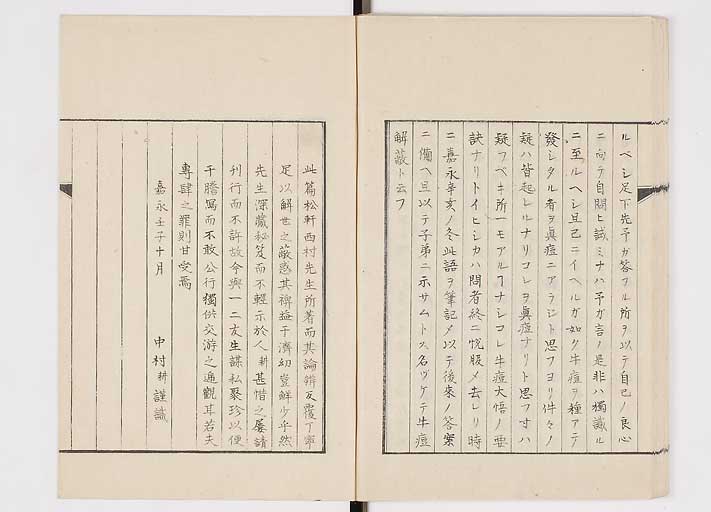 ルベシ足下先予ガ答フル所ヲ以テ自己ノ良心
ニ向テ自問ヒ試ミナハ予ガ言ノ是非ハ獨識ル
ニ至ルヘシ且己ニイヘルガ如ク牛痘ヲ種アテ
發シタル者ヲ眞痘ニアラジト思フヨリ件々ノ
疑ハ皆起レルナリコレヲ眞痘ナリト思フ寸ハ
疑フベキ所一モアルヿナシコレ牛痘大悟ノ要
訣ナリトイヒシカハ問者終ニ悦服メ去レリ時
ニ嘉永辛亥ノ冬此語ヲ筆記メ以テ後來ノ答案
ニ備ヘ且以テ子弟ニ示サムトス名ヅケテ牛痘
解蔽ト云フ
此篇松軒西村先生所著而其論辨反覆丁寧
足以解世之蔽惑其裨益于濟幼豈鮮少乎然
先生深藏秘笈而不輕示於人耕甚惜之屢請
刋行而不許故今與一二友生謀私聚珍以便
于謄寫而不敢公行獨供交游之通觀耳若夫
專肆之罪則甘受焉
嘉永壬子十月
中村耕謹識